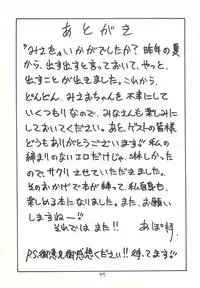 あとがき
"みさお"いかがでしたか?昨年の夏
から、出す出すと言っておいて、やっと、
出すことが出来ました。これから、
どんどん、みさおちゃんを不幸にして
いくつもりなので、みなさんも楽しみに
しておいてください。あと、ゲストの皆様
どうもありがとうございます。私の
締まりのないエロだけじゃ、淋しかった
ので、サクリさせていただきました。
そのおかげで本が締って、私自身も、
楽しめる本になりました。また、お願い
しますねー
それでは また!! あぽ
P.S.御意見御感想ください!!待ってます